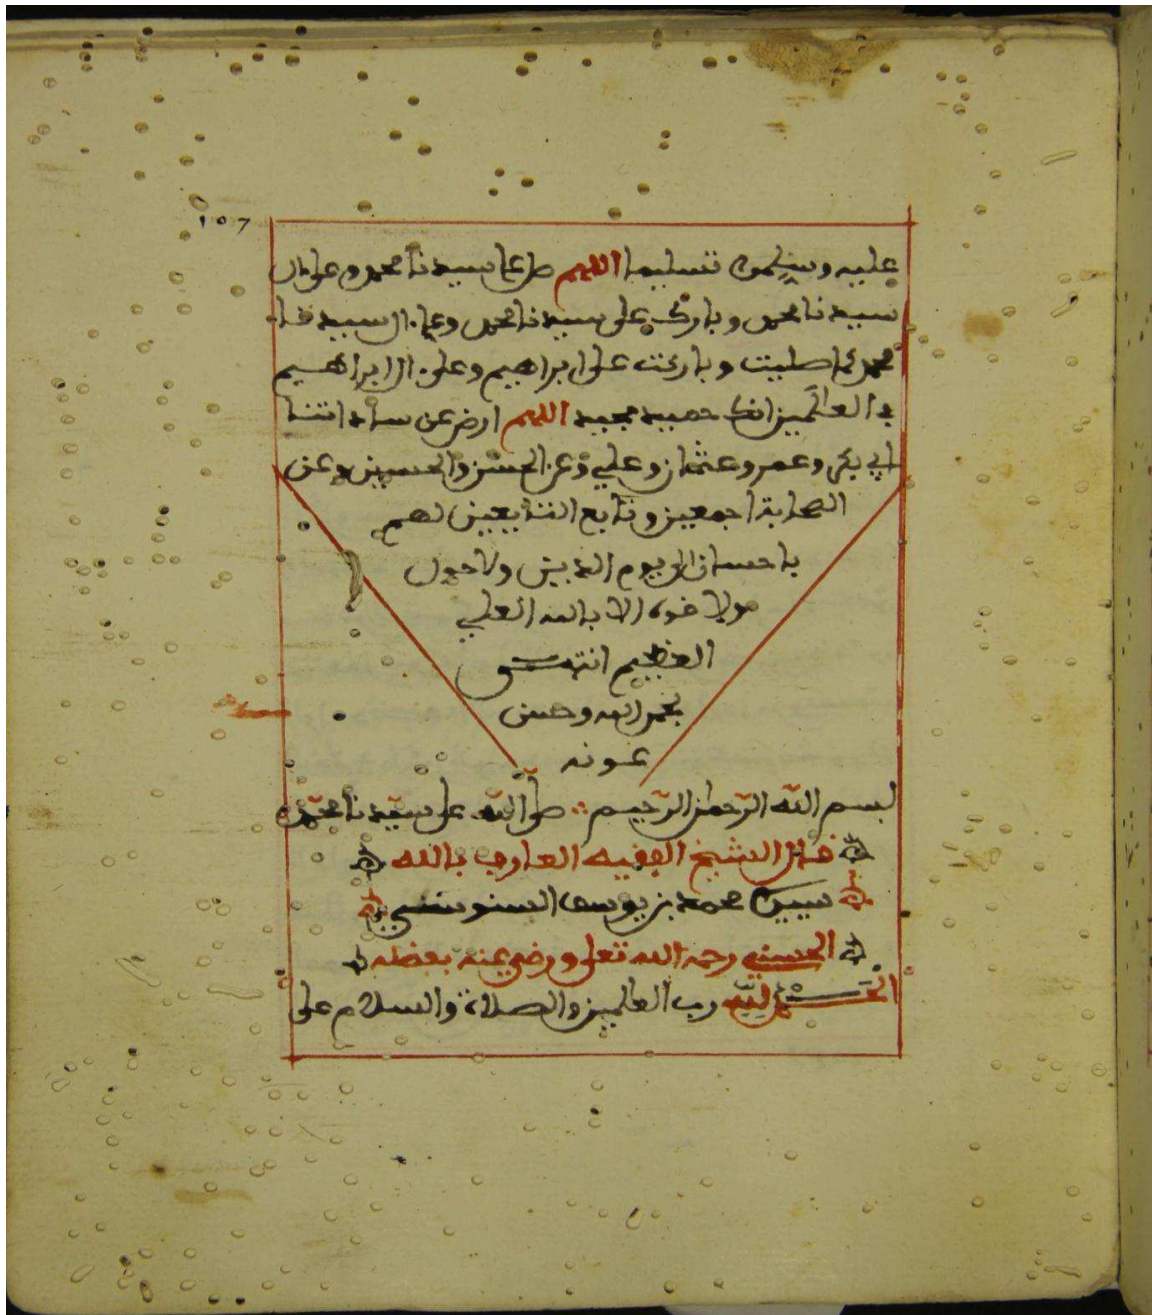 ١٥٦
عليه وسلموا تسليما اللهم صل على سيدنا محمد وعلى ءال
سيدنا محمد وبارك على سيدنا محمد وعلى ءال سيدنا
محمد كما صليت وباركت على ابراهيم وعلى ءال ابراهيم
في العالمين انك حميد مجيد اللهم ارض عن ساداتنا
ابي بكر وعمر وعثمان وعلي وعن الحسن والحسين وعن
الصحابة اجمعين وتابع التابعين لهم
باحسان الى يوم الدين ولا حول
ولا قوة الا بالله العلي
العظيم انتهى
بحمد الله وحسن
عونه
بسم الله الرحمن الرحيم صلى الله على سيدنا محمد
قال الشيخ الفقيه العارف بالله
سيدي محمد بن يوسف السنوسي
الحسني رحمه الله تعلى ورضي عنه بفضله
الحمد لله رب العالمين والصلاة والسلام على